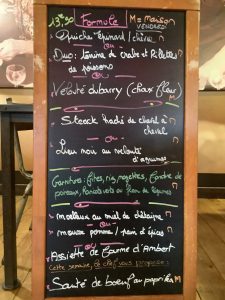 13€90 Formule M = maison
VENDREDI
Quiche épinard / chèvre M
ou
Duo: terrine de crabe et Rillettes
de poissons
ou
Velouté dubarry (choux fleur) M
Steack haché de cheval à
cheval
ou
Lieu noir au velouté
d'agrumes
Garnitures: frites, riz, mogettes, fondue de
poireaux, Haricots verts ou flan de légumes
moelleux au miel de châtaigne M
ou
mousse pomme / pain d'épices M
ou
Assiette de fourme d'Ambert
Cette semaine, le chef vous propose:
Sauté de boeuf au paprika M